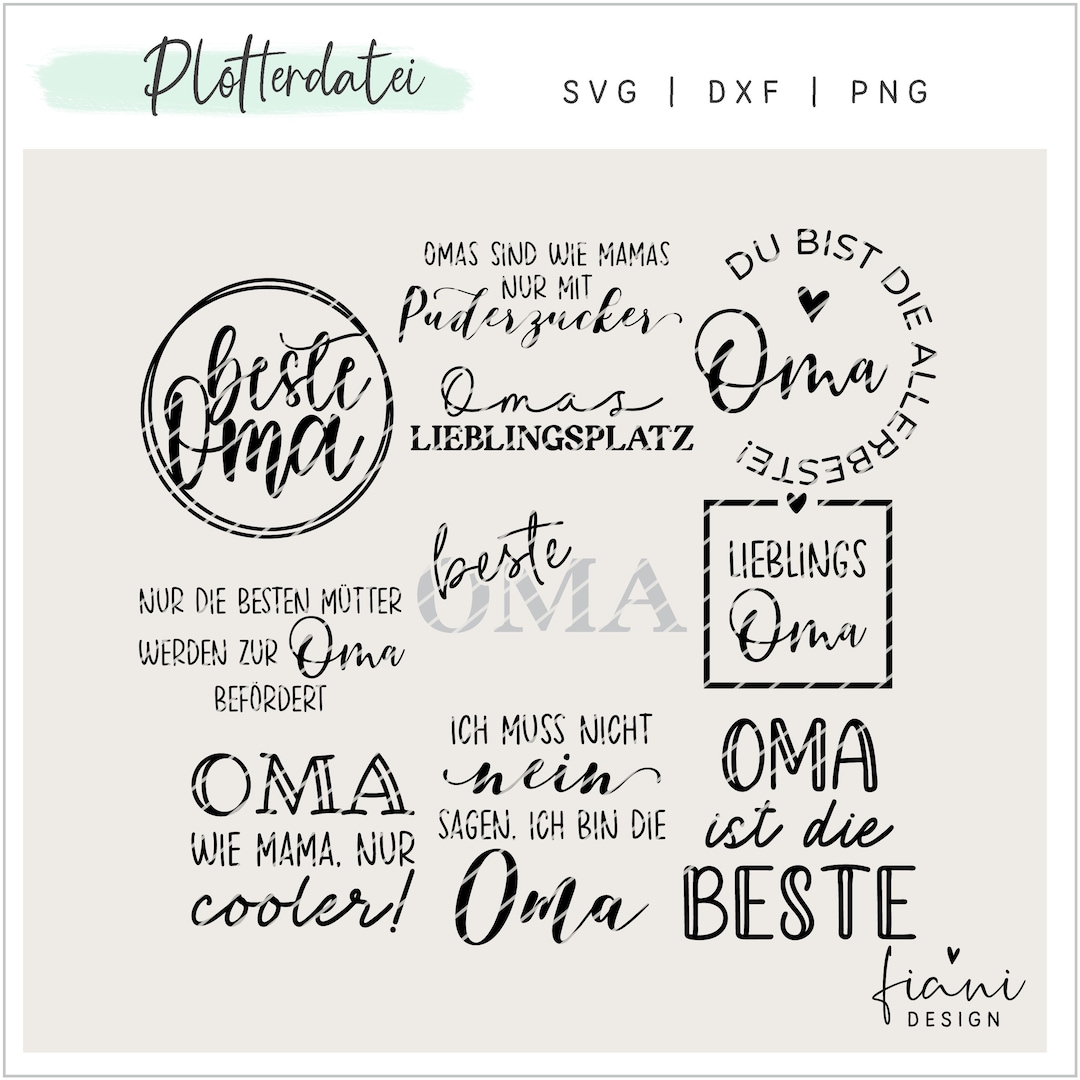 Plotterdatei
SVG | DXF | PNG
beste
Oma
OMAS SIND WIE MAMAS
NUR MIT
Puderzucker
Omas
LIEBLINGSPLATZ
DU BIST DIE ALLERBESTE!
Oma
NUR DIE BESTEN MÜTTER
WERDEN ZUR Oma
BEFÖRDERT
beste
OMA
LIEBLINGS
Oma
OMA
WIE MAMA, NUR
cooler!
ICH MUSS NICHT
nein
SAGEN. ICH BIN DIE
Oma
OMA
ist die
BESTE
fiani
DESIGN